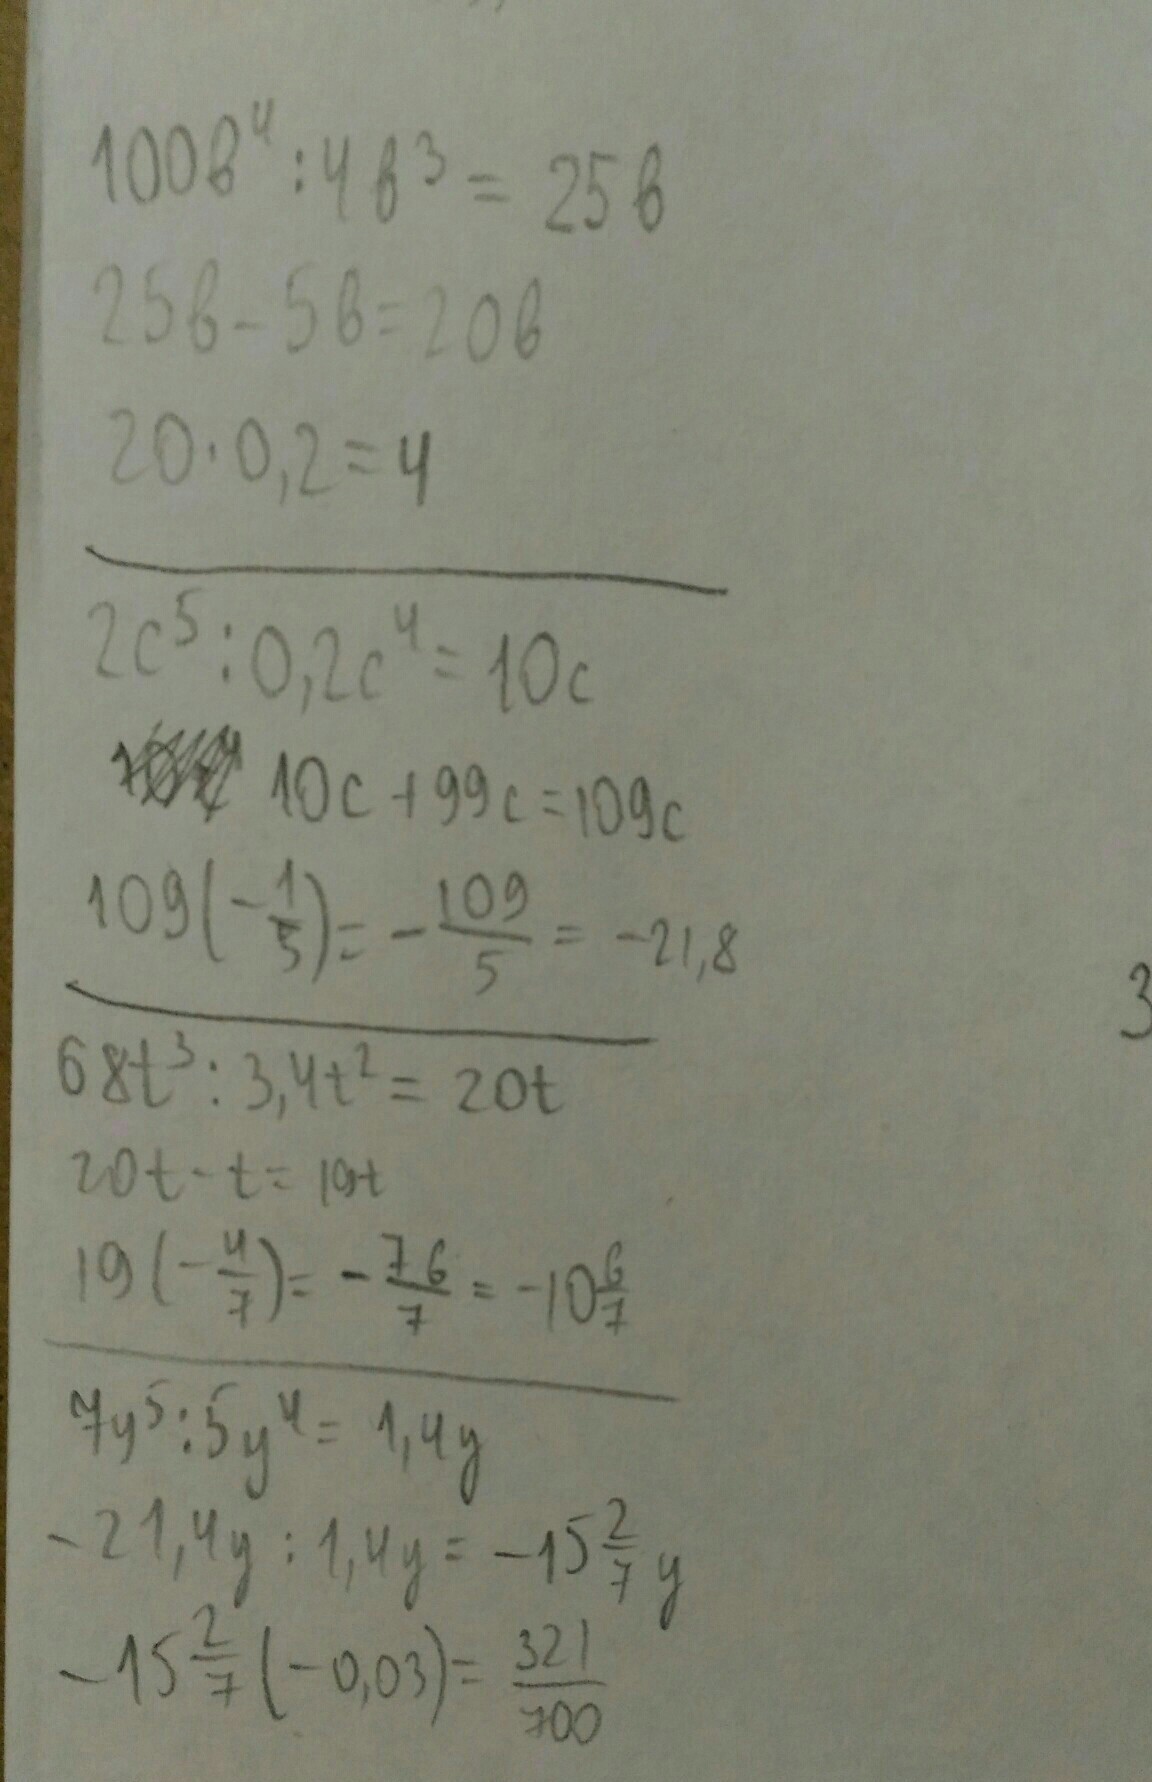 100в⁴ : 4в³ = 25в
25в - 5в = 20в
20 · 0,2 = 4
2c⁵ : 0,2c⁴ = 10c
10c + 99c = 109c
109(-1/5) = -109/5 = -21,8
68t³ : 3,4t² = 20t
20t - t = 19t
19(-4/7) = -76/7 = -10 6/7
7y⁵ : 5y⁴ = 1,4y
-21,4y : 1,4y = -15 2/7 y
-15 2/7 (-0,03) = 321/700
3